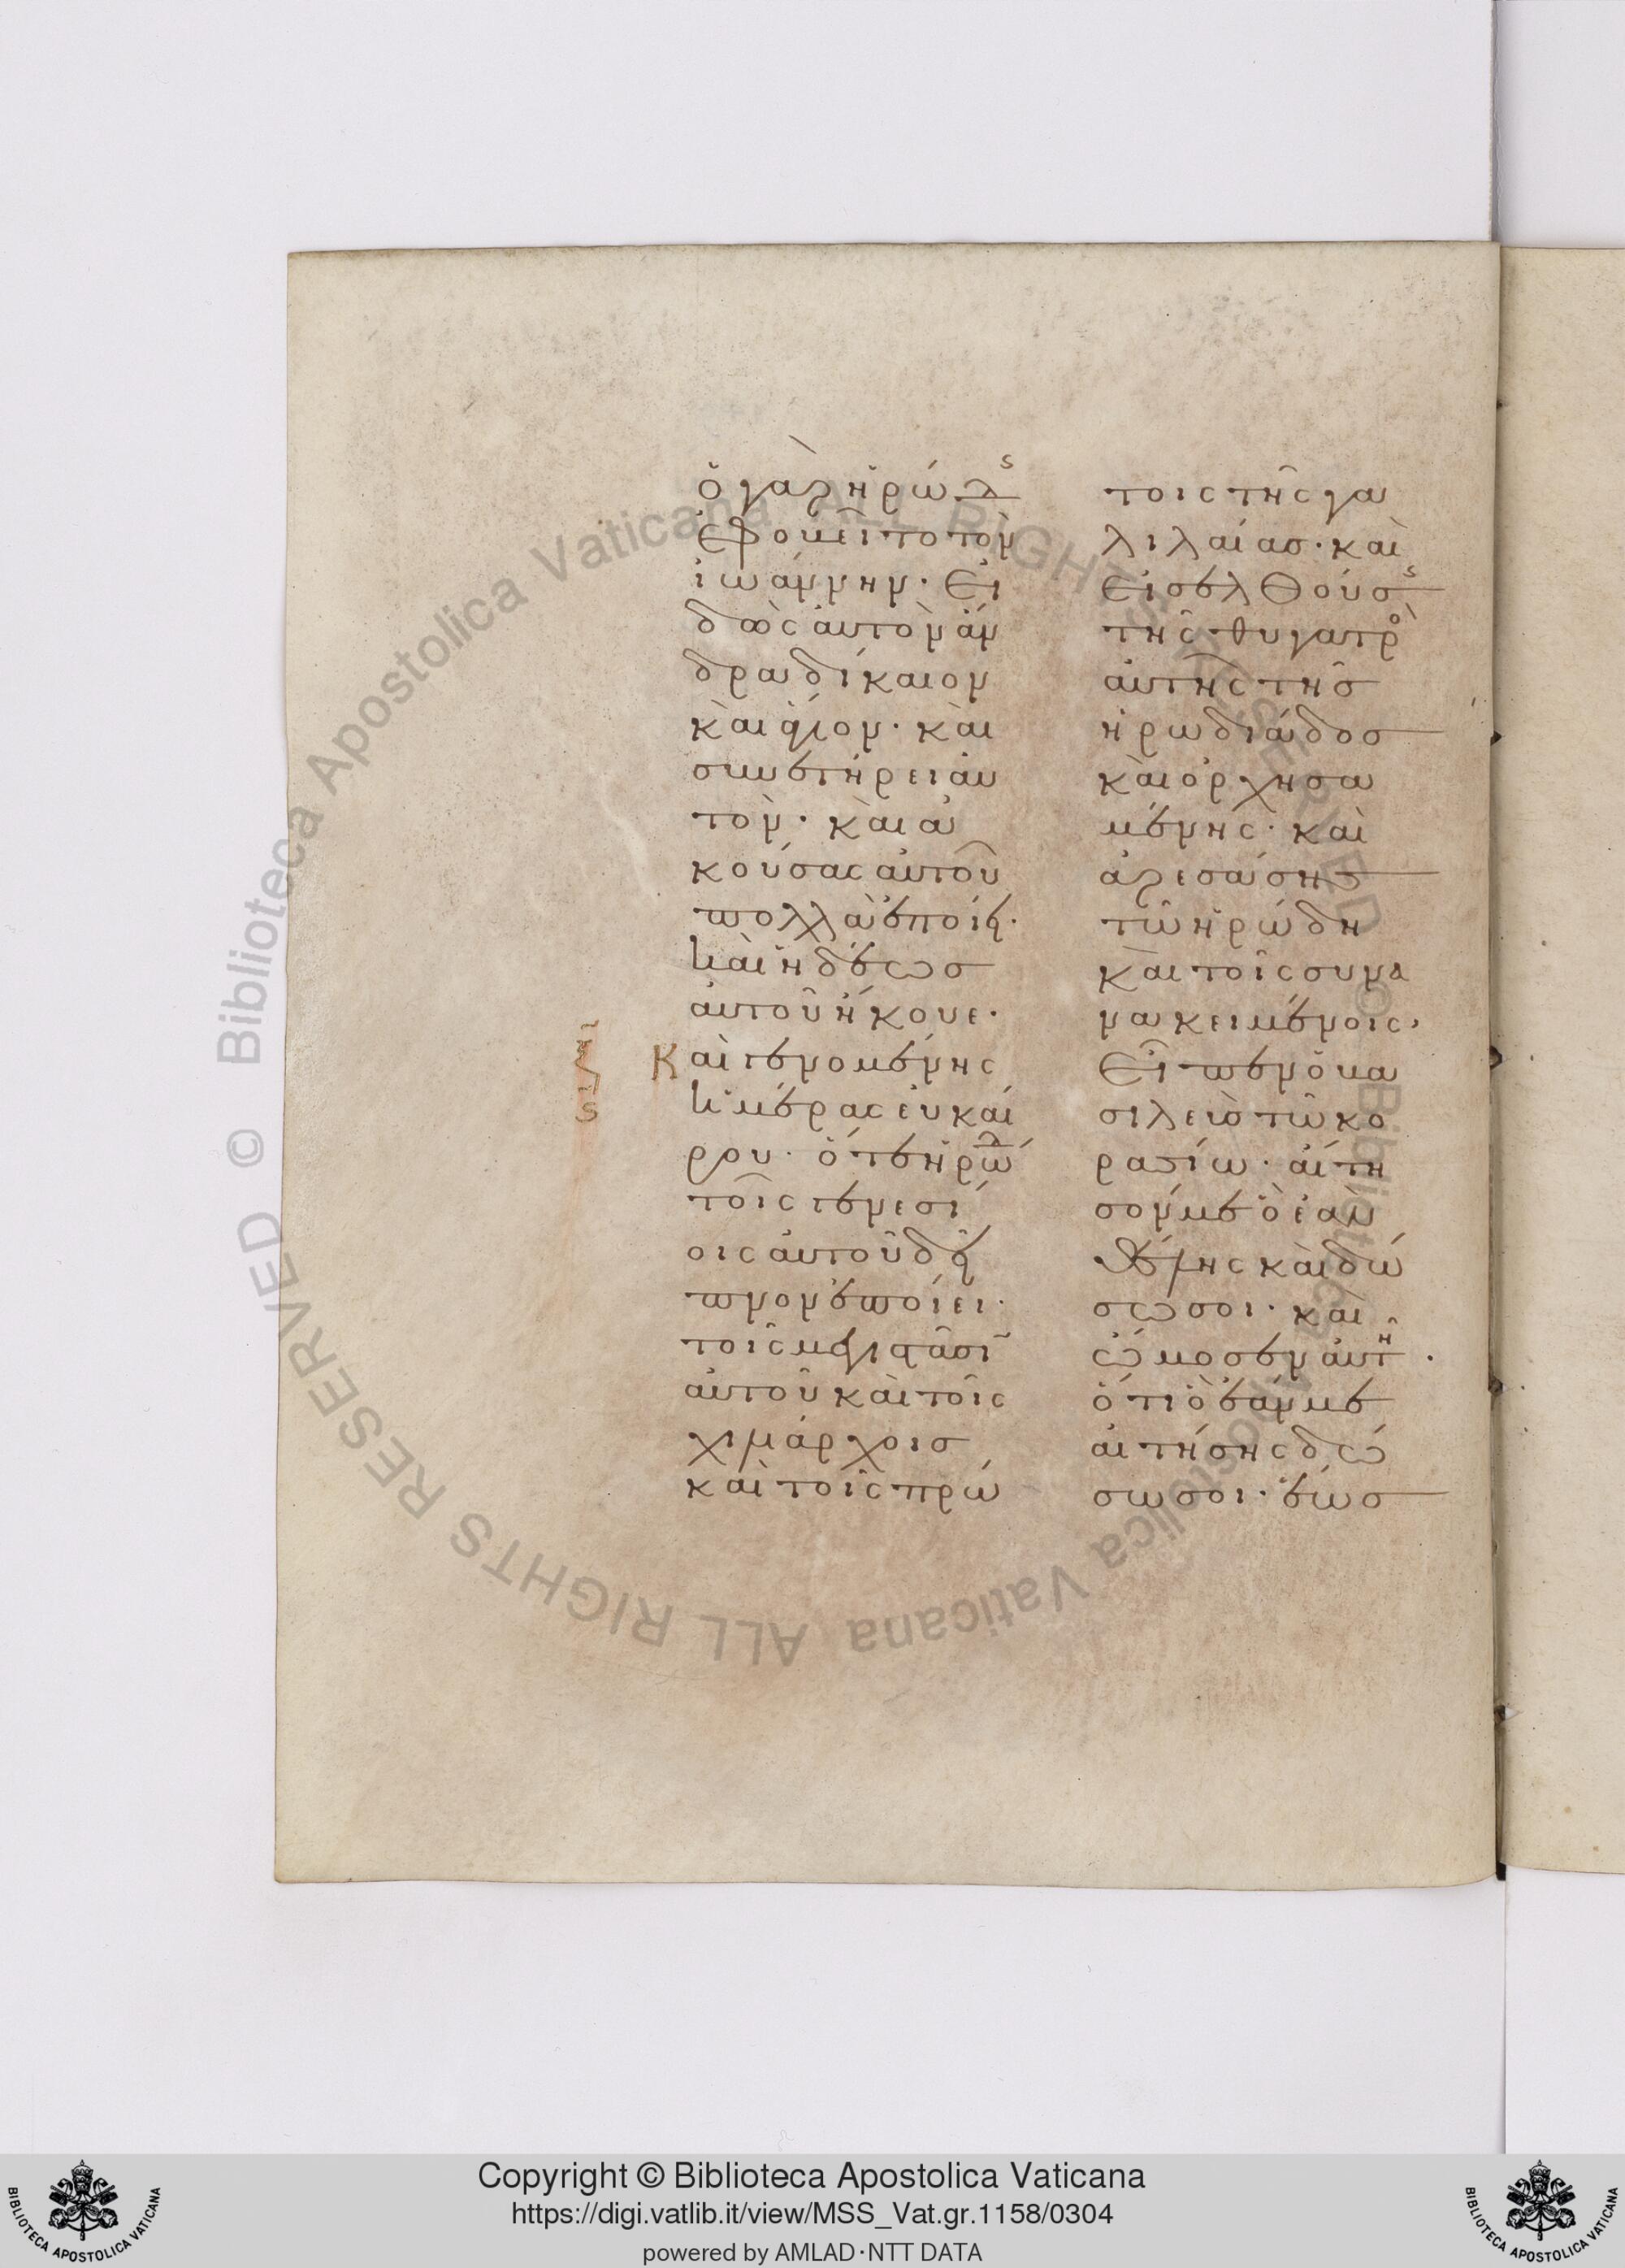 ὁ γὰρ ἡρώδς
ἐφοβεῖτο τὸν
ἰωάννην· Εἰ
δὼς αὐτὸν ἄν
δρα δίκαιον
καὶ ἅγιον· καὶ
συνετήρει αὐ
τόν· καὶ ἀ
κούσας αὐτοῦ
πολλὰ ἐποίει·
καὶ ἡδέως
αὐτοῦ ἤκουε·
Καὶ γενομένης
ἡμέρας εὐκαί
ρου· ὅτε ἡρώδ
τοῖς γενεσί
οις αὐτοῦ δεῖ
πνον ἐποίει·
τοῖς μεγιστᾶσι
αὐτοῦ καὶ τοῖς
χιλιάρχοις
καὶ τοῖς πρώ
τοις τῆς γα
λιλαίας· καὶ
Εἰσελθούσς
τῆς θυγατρὸ
αὐτῆς τῆς
ἡρωδιάδος
καὶ ὀρχησα
μένης· καὶ
ἀρεσάσης
τῶ ἡρώδη
καὶ τοῖς συνα
νακειμένοις,
Εἶπεν ὁ βα
σιλεὺς τῶ κο
ρασίω· αἴτη
σόν με ὃ ἐὰν
θέλης καὶ δώ
σω σοι· καὶ
ὤμοσεν αὐτῆ·
ὅτι ὃ ἐάν με
αἰτήσης δώ
σω σοι· ἕως
Copyright © Biblioteca Apostolica Vaticana
https://digi.vatlib.it/view/MSS_Vat.gr.1158/0304
powered by AMLAD·NTT DATA
BIBLIOTECA APOSTOLICA VATICANA
BIBLIOTECA APOSTOLICA VATICANA
© Biblioteca Apostolica Vaticana ALL RIGHTS RESERVED © Biblioteca Apostolica Vaticana ALL RIGHTS RESERVED